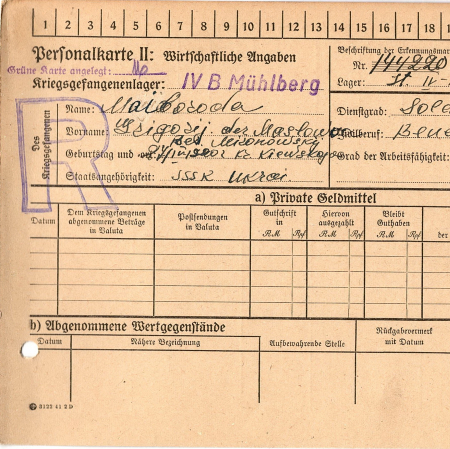 1 2 3 4 5 6 7 8 9 10 11 12 13 14 15 16 17 18
Personalkarte II: Wirtschaftliche Angaben
Beschriftung der Erkennungsmar
Grüne Karte angelegt:
Nr. 144220
Kriegsgefangenenlager: IV B Mühlberg
Lager: St. IV-
Des Kriegsgefangenen
R
Name: Maiboroda
Dienstgrad: Sold
Vorname: Grigorij
Geburtstag und
Grad der Arbeitsfähigkeit:
Staatsangehörigkeit: SSSR Ukrai.
a) Private Geldmittel
Datum
Dem Kriegsgefangenen abgenommene Beträge in Valuta
Postsendungen in Valuta
Gutschrift in
Hiervon ausgezahlt
Bleibt Guthaben
der
RM Rpf RM Rpf RM Rpf
b) Abgenommene Wertgegenstände
Rückgabevermerk mit Datum
Datum
Nähere Bezeichnung
Aufbewahrende Stelle
3122 41 2 D